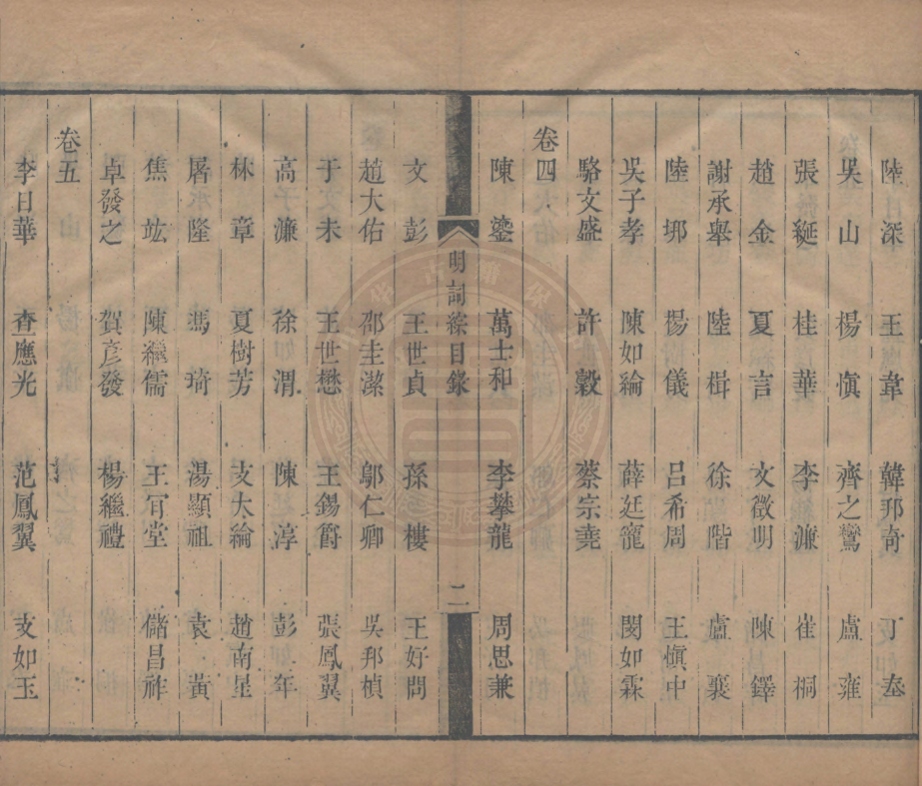 陸深　王韋　韓邦奇　丁奉
吳山　楊慎　齊之鸞　盧雍
張綖　桂華　李濂　崔桐
趙金　夏言　文徵明　陳鐸
謝承舉　陸楫　徐階　盧襄
陸埛　楊儀　呂希周　王愼中
吳子孝　陳如綸　薛廷寵　閔如霖
駱文盛　許穀　蔡宗堯
卷四
陳鎏　萬士和　李攀龍　周思兼
明詞綜目錄　二
文彭　王世貞　孫樓　王好問
趙大佑　邵圭潔　鄔仁卿　吳邦楨
于未　王世懋　王錫爵　張鳳翼
高濂　徐渭　陳淳　彭年
林章　夏樹芳　支大綸　趙南星
屠隆　馮琦　湯顯祖　袁黃
焦竑　陳繼儒　王宵堂　儲昌祚
卓發之　賀彥發　楊繼禮
卷五
李日華　查應光　范鳳翼　支如玉